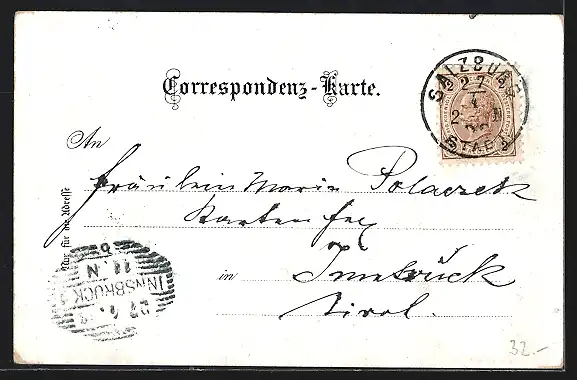 Correspondenz-Karte.
SALZBURG
27
4
STADT
An
Fräulein Marie Polaczek
in Innsbruck
Tirol.
Nur für die Adresse
INNSBRUCK
27. 4.
11. N
32.-